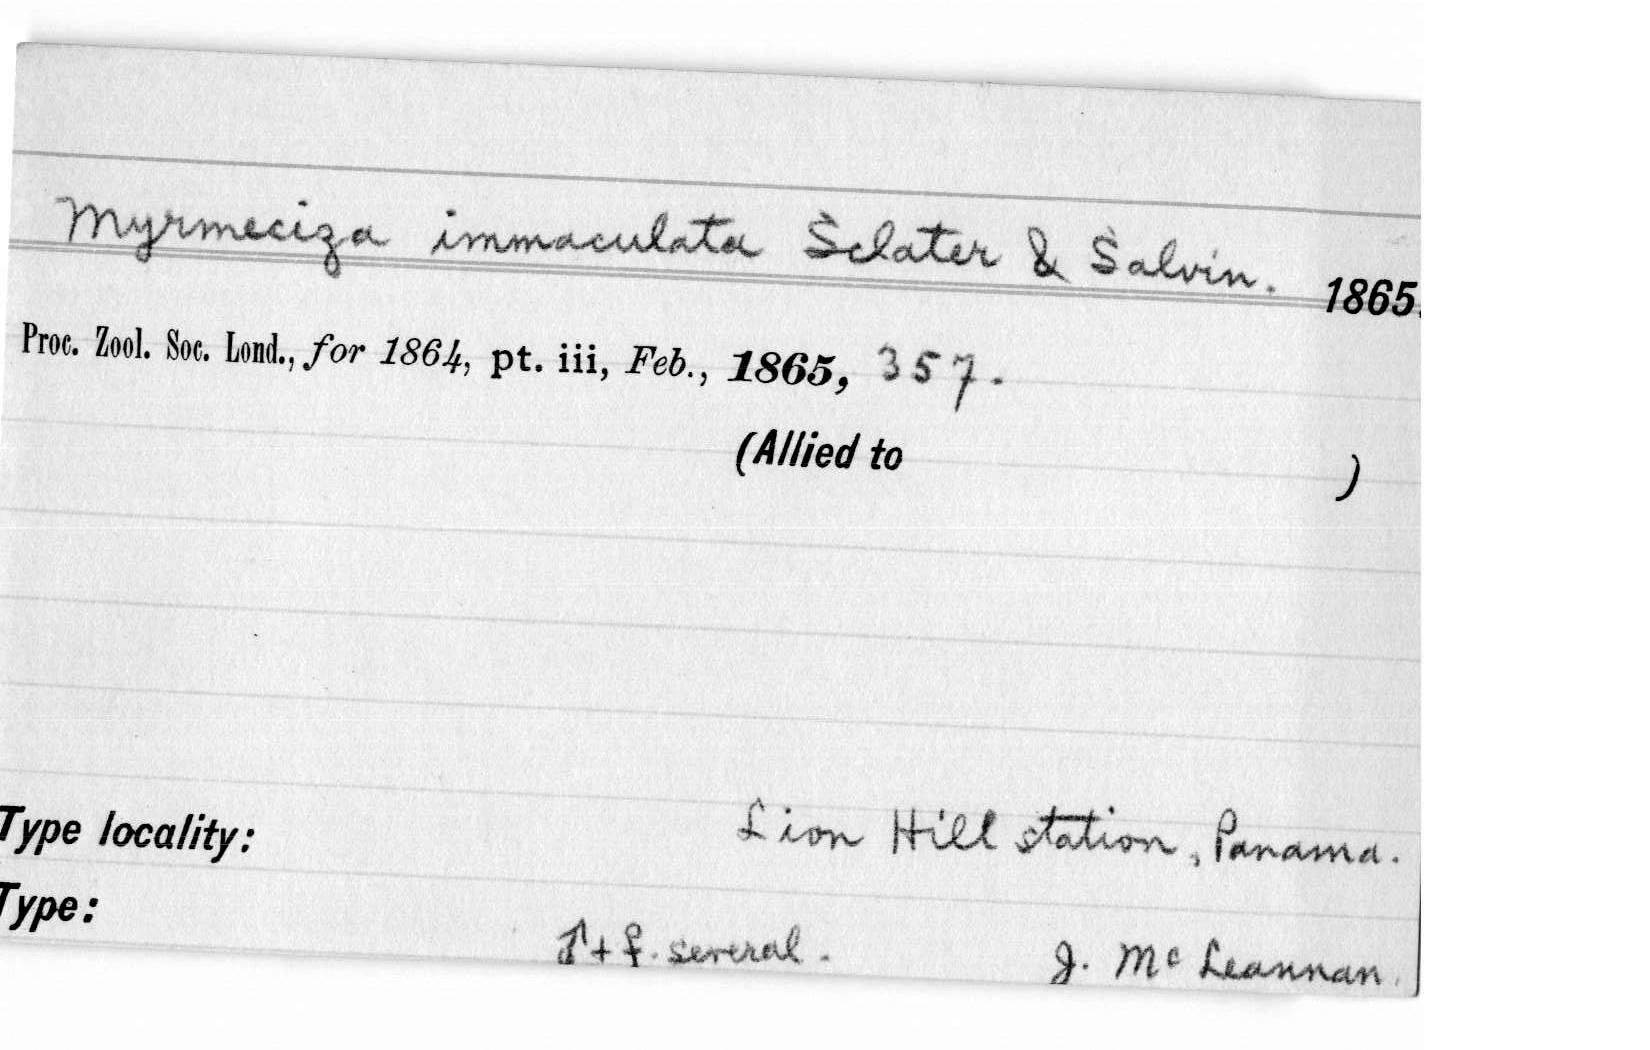 Myrmeciza immaculata Sclater & Salvin. 1865.
Proc. Zool. Soc. Lond., for 1864, pt. iii, Feb., 1865, 357.
(Allied to )
Type locality: Lion Hill station, Panama.
Type: ♂ + ♀. several. J. McLeannan.